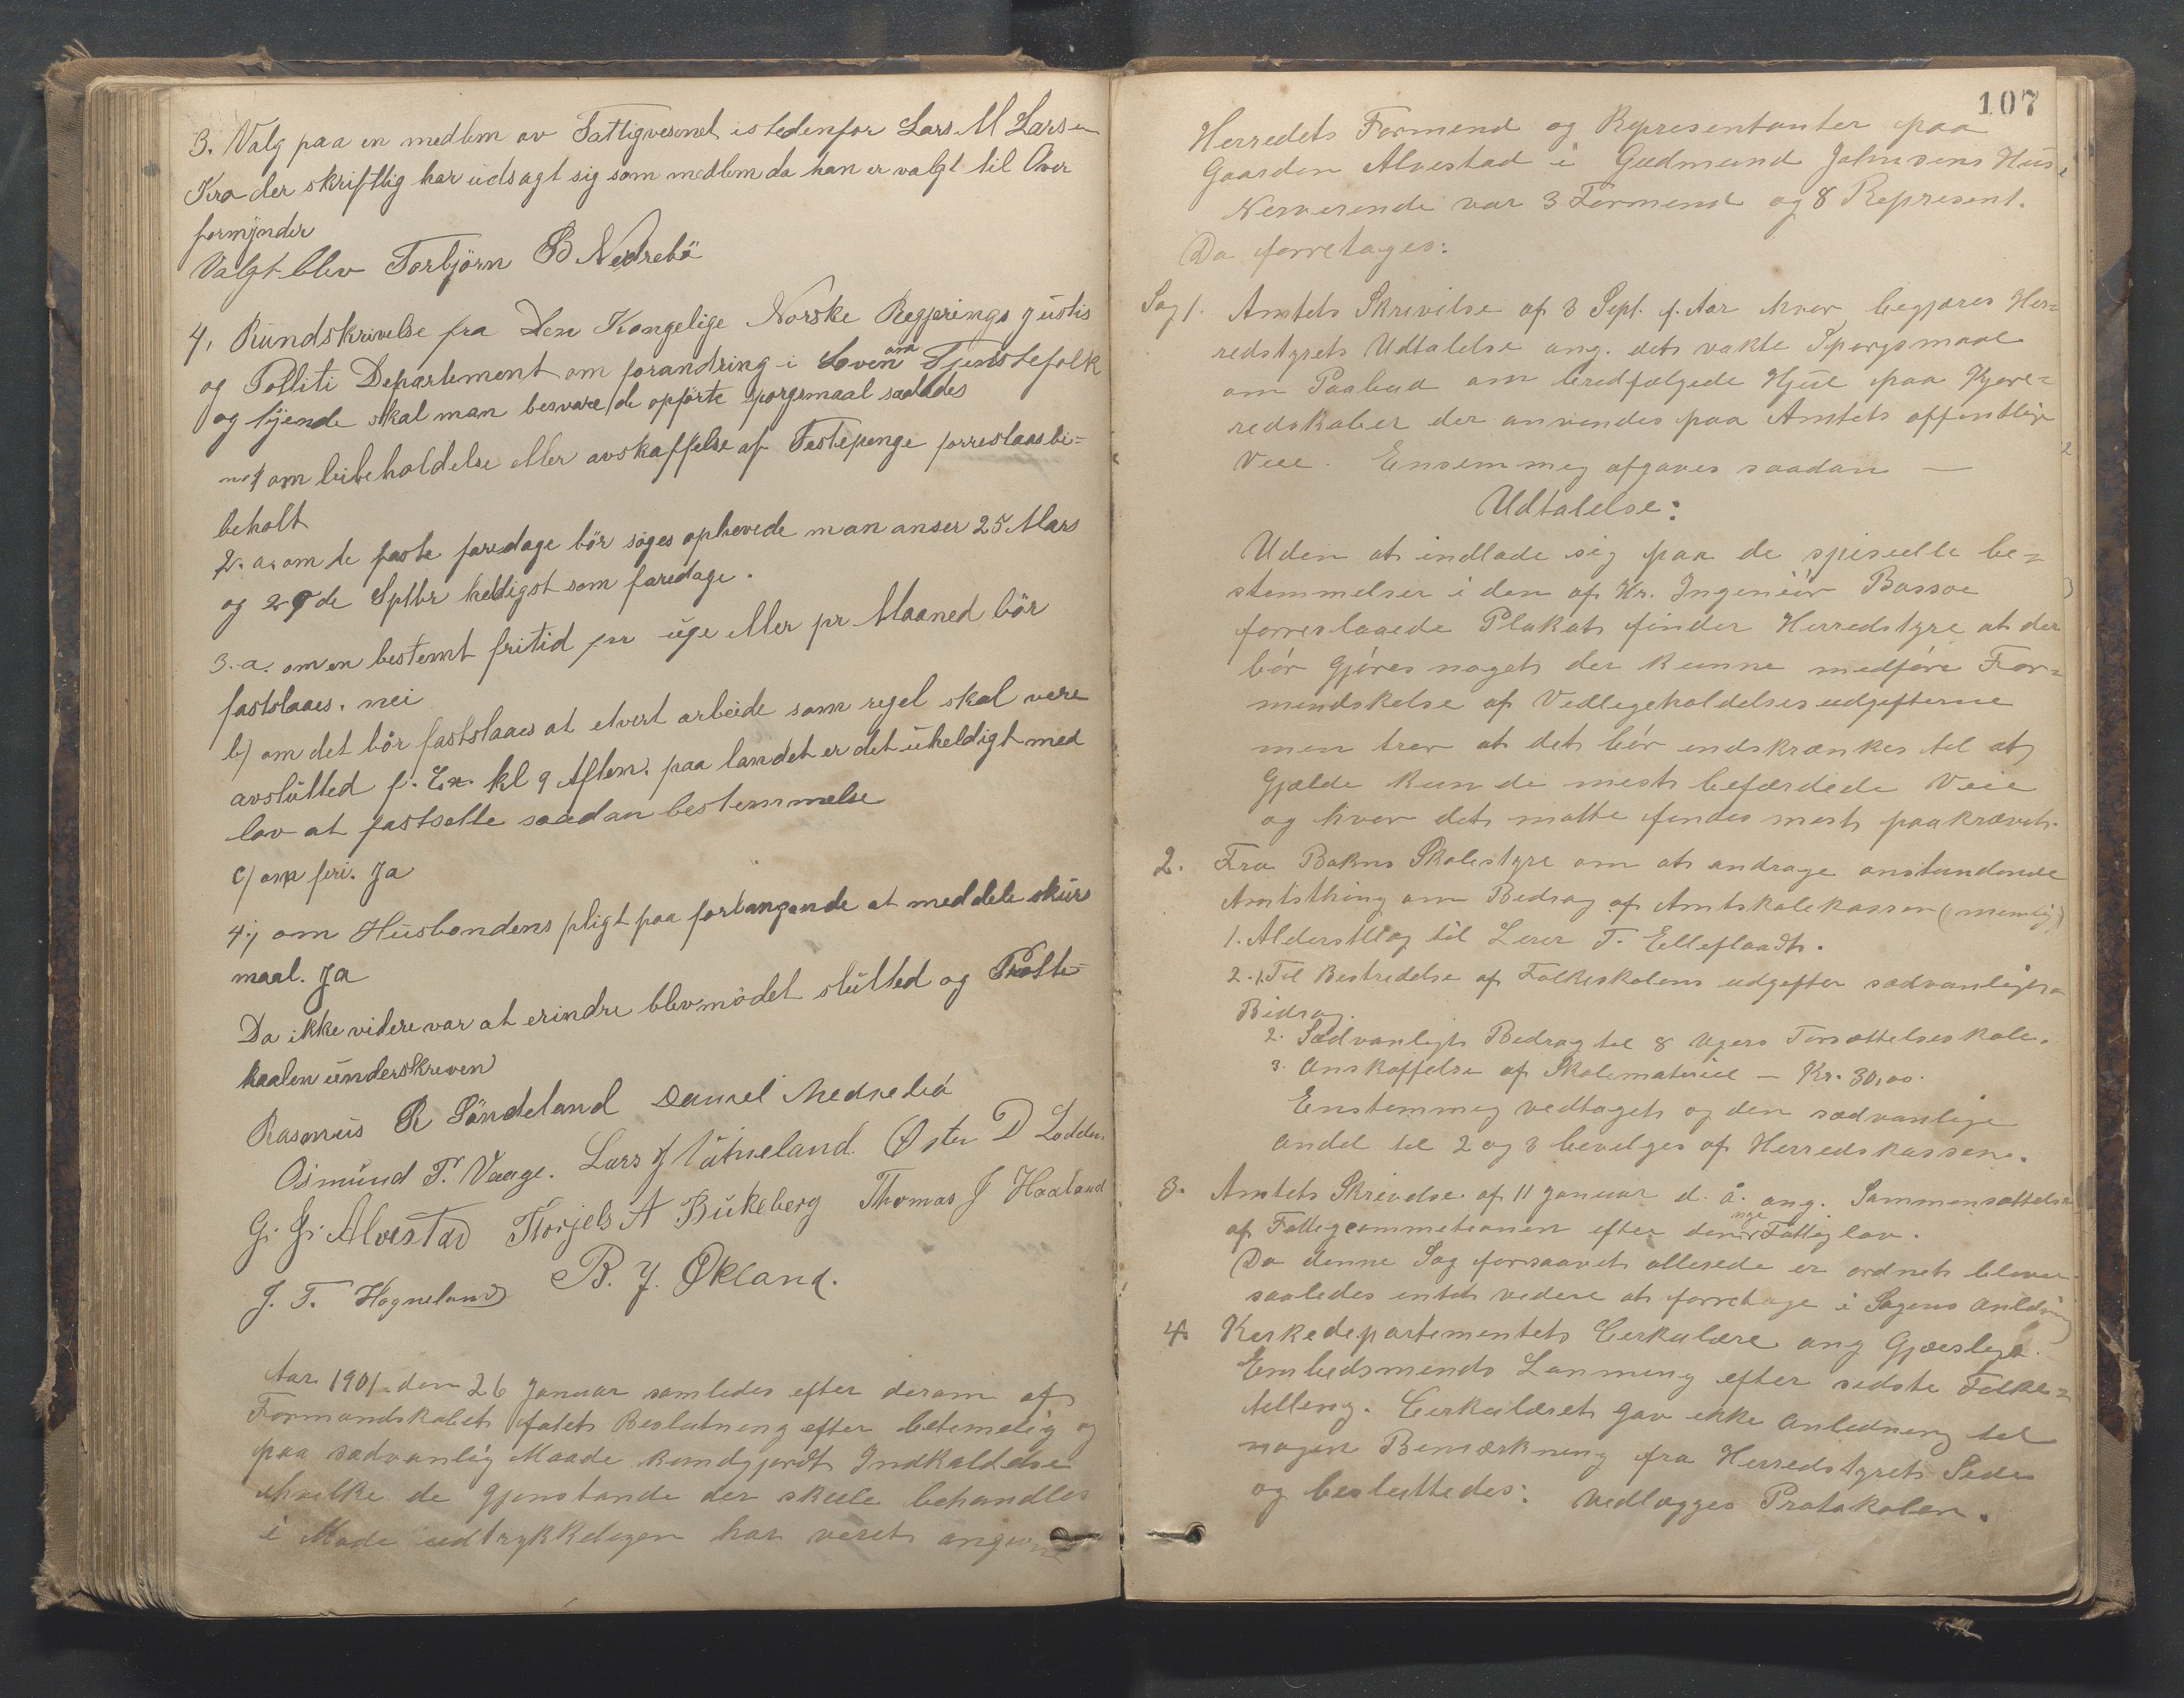 3. Valg paa en medlem av Fattigvesenet istedenfor Lars M Larsen
Kra der skriftlig har udsagt sig som medlem da han er valgt til Over
formynder
Valgt blev Torbjörn B Nedrebö
4, Rundskrivelse fra Den Kongelige Norske Regjerings justis
og Politi Departement om forandring i Loven om Tjenstefolk
og tyende skal man besvare de opførte sporgsmaal saaledes
no 1 om beibeholdelse eller avskaffelse af Festepenge forreslaas bi=
beholt
2. a. om de faste faredage bör söges ophevede man anser 25 Mars
og 29de Sptbr heldigst som faredage.
3. a. om en bestemt fritid pr uge eller pr Maaned bör
fastslaaes. nei
b) om det bör fastslaaes at ethvert arbeide som regel skal vere
avslutted f. Ex. kl 9 Aften. paa landet er det uheldigt med
lov at fastsette saadan bestemmelse
c) om feri. Ja
4.) om Husbondens pligt paa forlangende at meddele skurs
maal. Ja
Da ikke videre var at erindre blev mödet slutted og Protte=
kaalen underskreven
Rasmus R Söndeland Daniel Nedrebö
Osmund T. Vaage. Lars J Vatneland. Østen D Lodden
G. G. Alvestad Thorjels A Bukeberg Thomas J Haaland
J. T. Hogneland B. J. Økland.
Aar 1901 den 26 Januar samledes efter derom af
Formandskabet fatet Beslutning efter betimelig og
paa sædvanlig Maade kundgjordt Indkaldelse
hvilke de Gjenstande der skule behandles
i Møde udtrykkeligen har veret angivne
107
Herredets Formend og Representanter paa
Gaarden Alvestad i Gudmund Johnsens Hus,
Nerverende var 3 Formend og 8 Represent.
Da forretages:
Sag 1. Amtets Skrivelse af 3 Sept. f. Aar hvor begjæres Her=
redstyrets Udtalelse ang. det vakte Spørgsmaal
om Paabud om bredfælgede Hjul paa Kjøre=
redskaber der anvendes paa Amtets offentlige
Veie. Ensemmeg afgaves saadan —
Udtalelse:
Uden at indlade sig paa de spiselle be=
stemmelser i den af Hr. Ingeniør Bassøe
forreslaaede Plakat finder Herredstyre at der
bør gjøres noget der kunne medføre For=
mindskelse af Vedlegeholdelsesudgifterne
men tror at det bør indskrænkes til at
Gjælde kun de mest befærdede Veie
og hvor det matte findes mest paakrævet.
2. Fra Bokns Skolestyre om at andrage anstundende
Amtsthing om Bedrag af Amtskolekassen (nemlig)
1. Alderstilæg til Lerer T. Elleflaadt.
2. 1. Til Bestridelse af Folkeskolens udgifter sædvanligt
Bidrag.
2. Sædvanligt Bedrag til 8 Ugers Forsættelseskole.
3. Anskaffelse af Skolemateriel — Kr. 30,00.
Enstemmeg vedtaget og den sædvanlige
Andel til 2 og 3 bevelges af Herredskassen.
3. Amtets Skrivelse af 11 Januar d. å. ang. Sammensættelse
af Fattigcommetionen efter den nye Fattiglov.
Da denne Sag forsaavet allerede er ordnet blever
saaledes intet videre at forretage i Sagens Anledn
4. Kerkedepartementets Cerkulære ang Gjeslige
Embedsmends Lønneng efter sidste Folke=
telleng. Cerkulæret gav ikke Anledning tel
nogen Bemærkning fra Herredstyrets Side
og besluttedes: Vedlægges Protokolen.